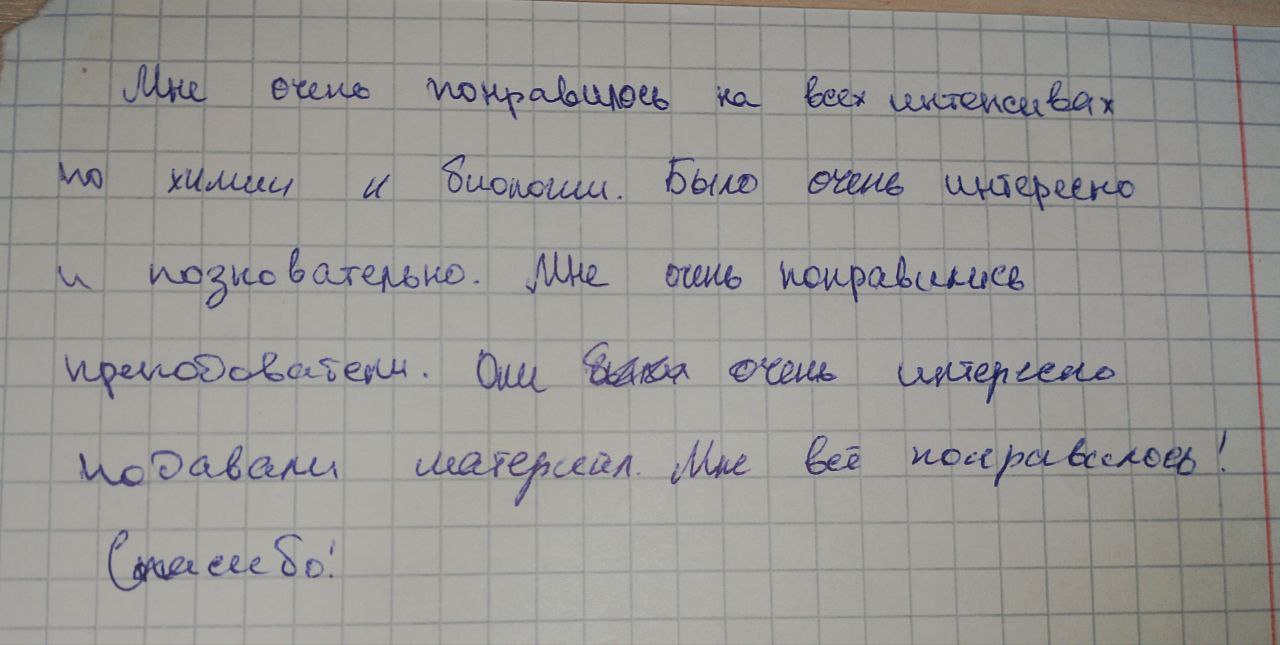 Мне очень понравилось на всех интенсивах
по химии и биологии. Было очень интересно
и позновательно. Мне очень понравились
преподователи. Они очень интересно
подавали материал. Мне всё понравилось!
Спасибо!